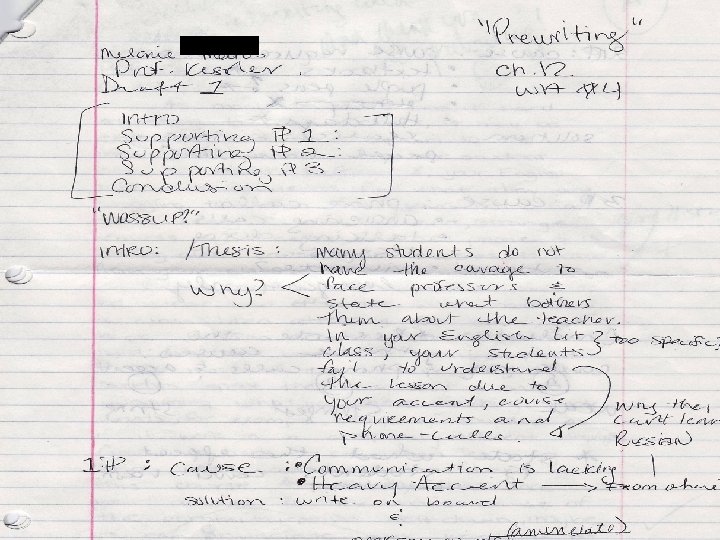 "Prewriting"
Melanie
Prof. Kessler.
Draft 1
ch. 12.
WA #4
Intro
Supporting ¶ 1:
Supporting ¶ 2:
Supporting ¶ 3.
Conclusion
"WASSUP?"
Intro: /Thesis: Many students do not
have the courage to
Why? < face professors &
state what bothers
them about the teacher.
In your English Lit } too specific?
class, your students
fail to understand
the lesson due to
your accent, course
requirements and
phone-calls.
Why they
can't learn
REASON
1 ¶: Cause: • Communication is lacking
• Heavy Accent → from where
solution: write on board
&
(annunciate)